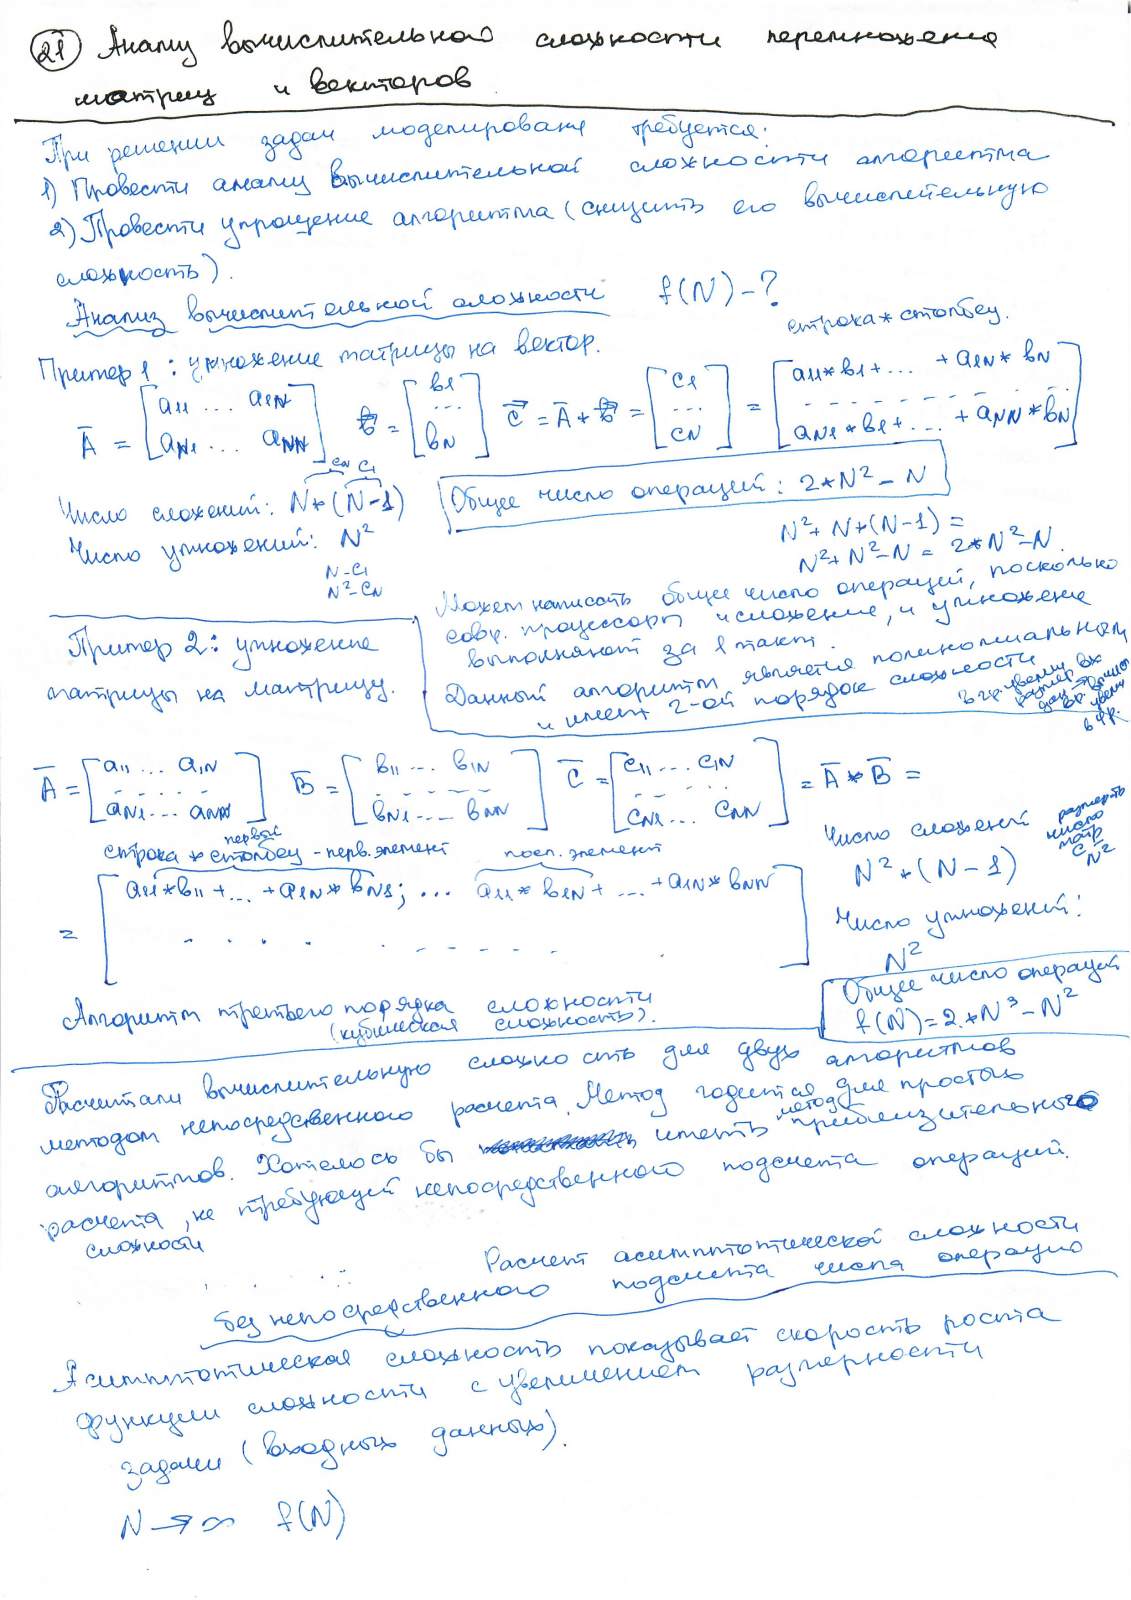 21 Анализ вычислительной сложности перемножения
матриц и векторов
При решении задач моделирования требуется:
1) Провести анализ вычислительной сложности алгоритма
2) Провести упрощение алгоритма (снизить его вычислительную
сложность).
Анализ вычислительной сложности f(N) - ?
строка * столбец.
Пример 1: умножение матрицы на вектор.
A = [a11 ... a1N aN1 ... aNN] b = [b1 ... bN] c = A * b = [c1 ... cN] = [a11*b1+... +a1N*bN - - - aN1*b1+... +aNN*bN]
cN c1
Число сложений: N*(N-1)
Общее число операций: 2*N² - N
Число умножений: N²
N - c1
N² - cN
N² + N*(N-1) =
N² + N² - N = 2*N² - N
Может написать общее число операций, поскольку
совр. процессоры и сложение, и умножение
выполняют за 1 такт.
Данный алгоритм является полиномиальным
и имеет 2-ой порядок сложности
в 2р. увелич
размер вх
дан →
вр. вычисл
увелич
в 4р.
Пример 2: умножение
матрицы на матрицу.
A = [a11 ... a1N aN1 ... aNN] B = [b11 ... b1N bN1 ... bNN] C = [c11 ... c1N cN1 ... cNN] = A * B =
первый
строка * столбец - перв. элемент посл. элемент
= [a11*b11+... +a1N*bN1; ... a11*b1N+ ... +a1N*bNN]
Число сложений
N² * (N-1)
число
матр
C
N²
Число умножений:
N²
Общее число операций
f(N) = 2*N³ - N²
Алгоритм третьего порядка сложности
(кубическая сложность).
Расчитали вычислительную сложность для двух алгоритмов
методом непосредственного расчета. Метод годится для простых
алгоритмов. Хотелось бы иметь метод приблизительного
расчета, не требующий непосредственного подсчета операций.
сложности
Расчет асимптотической сложности
без непосредственного подсчета числа операций
Асимптотическая сложность показывает скорость роста
функции сложности с увеличением размерности
задачи (входных данных).
N → ∞ f(N)